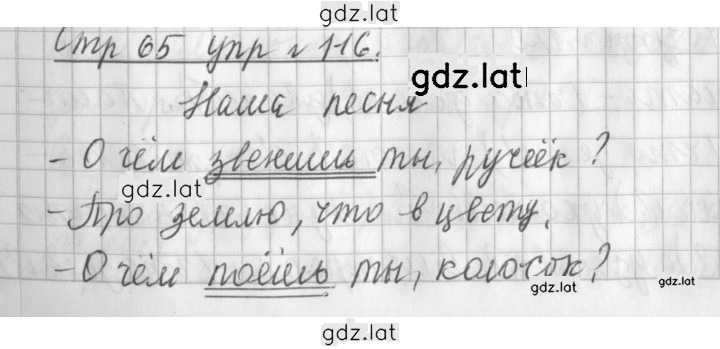 gdz.lat
Стр 65 упр № 116.
gdz.lat
Наша песня
- О чём звенишь ты, ручеёк?
gdz.lat
- Про землю, что в цвету.
- О чём поёшь ты, колосок?
gdz.lat
gdz.lat
gdz.lat